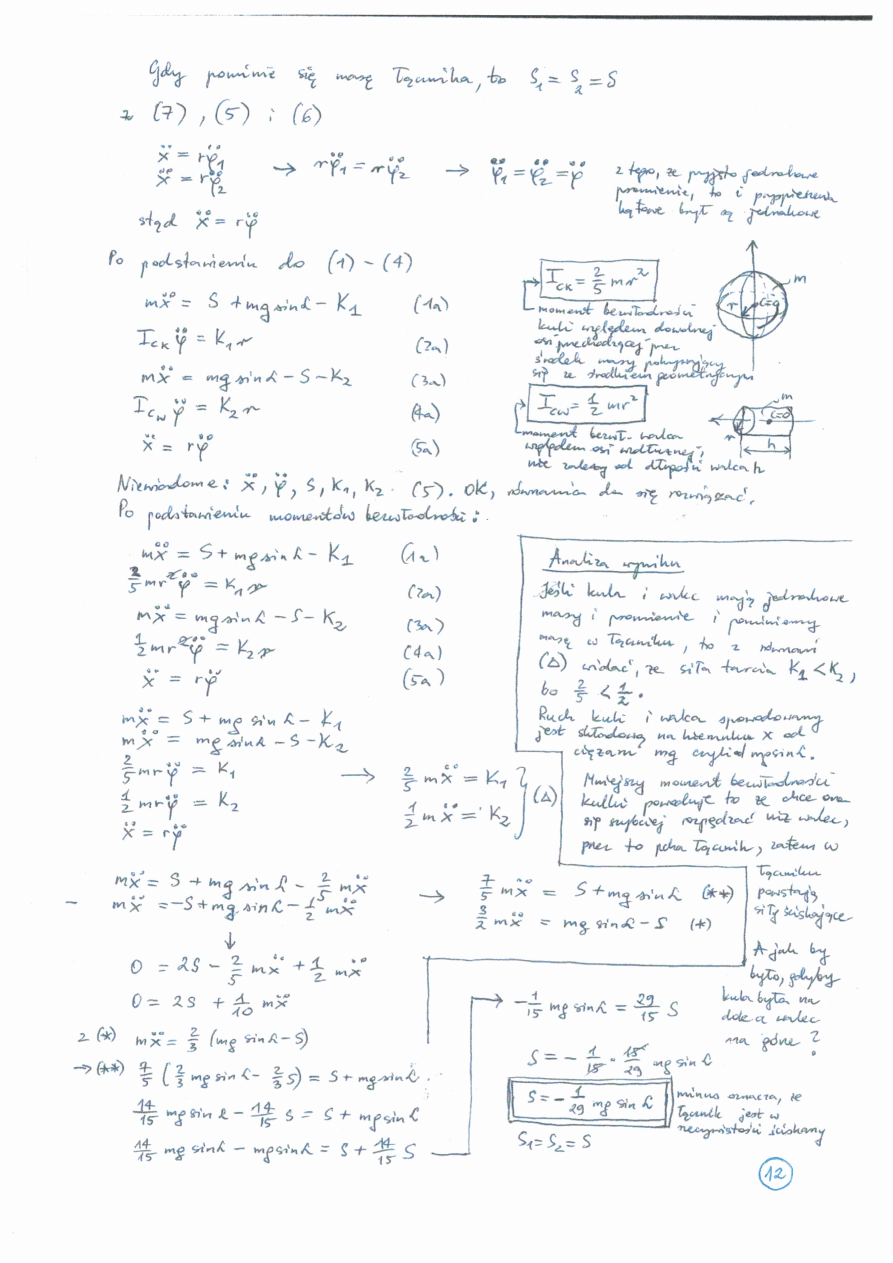 Gdy pominie się masę łącznika, to S₁ = S₂ = S
z (7), (5) i (6)
ẍ = rφ̈₁
ẍ = rφ̈₂
→ rφ̈₁ = rφ̈₂ → φ̈₁ = φ̈₂ = φ̈
z tego, że przyjęto jednakowe
promienie, to i przyspieszenia
kątowe brył są jednakowe
stąd ẍ = rφ̈
Po podstawieniu do (1) - (4)
mẍ = S + mg sinα - K₁ (1a)
I_CK φ̈ = K₁r (2a)
mẍ = mg sinα - S - K₂ (3a)
I_CW φ̈ = K₂r (4a)
ẍ = rφ̈ (5a)
I_CK = 2/5 mr²
moment bezwładności
kuli względem dowolnej
osi przechodzącej przez
środek masy pokrywający
się ze środkiem geometrycznym
m
r
I_CW = 1/2 mr²
moment bezwł. walca
względem osi wzdłużnej,
nie zależy od długości walca h
m
r
h
Niewiadome: ẍ, φ̈, S, K₁, K₂. (5). OK, równania da się rozwiązać.
Po podstawieniu momentów bezwładności:
mẍ = S + mg sinα - K₁ (1a)
2/5 mr²φ̈ = K₁r (2a)
mẍ = mg sinα - S - K₂ (3a)
1/2 mr²φ̈ = K₂r (4a)
ẍ = rφ̈ (5a)
mẍ = S + mg sinα - K₁
mẍ = mg sinα - S - K₂
2/5 mrφ̈ = K₁
1/2 mrφ̈ = K₂
ẍ = rφ̈
→ 2/5 mẍ = K₁
1/2 mẍ = K₂
(Δ)
Analiza wyniku
Jeśli kula i walec mają jednakowe
masy i promienie i pominiemy
masę w łączniku, to z równań
(Δ) widać, że siła tarcia K₁ < K₂,
bo 2/5 < 1/2.
Ruch kuli i walca spowodowany
jest składową na kierunku x od
ciężaru mg czyli mg sinα.
Mniejszy moment bezwładności
kulki powoduje to że chce ona
się szybciej rozpędzać niż walec,
przez to pcha łącznik, zatem w
łączniku
powstają
siły ściskające
A jak by
było, gdyby
kula była na
dole a walec
na górze?
mẍ = S + mg sinα - 2/5 mẍ
- mẍ = -S + mg sinα - 1/2 mẍ
→ 7/5 mẍ = S + mg sinα (**)
3/2 mẍ = mg sinα - S (*)
↓
0 = 2S - 2/5 mẍ + 1/2 mẍ
0 = 2S + 1/10 mẍ
z (*) mẍ = 2/3 (mg sinα - S)
→ (**) 7/5 (2/3 mg sinα - 2/3 S) = S + mg sinα
14/15 mg sinα - 14/15 S = S + mg sinα
14/15 mg sinα - mg sinα = S + 14/15 S
→ -1/15 mg sinα = 29/15 S
S = - 1/15 · 15/29 mg sinα
S = - 1/29 mg sinα
minus oznacza, że
łącznik jest w
rzeczywistości ściskany
S₁ = S₂ = S
12